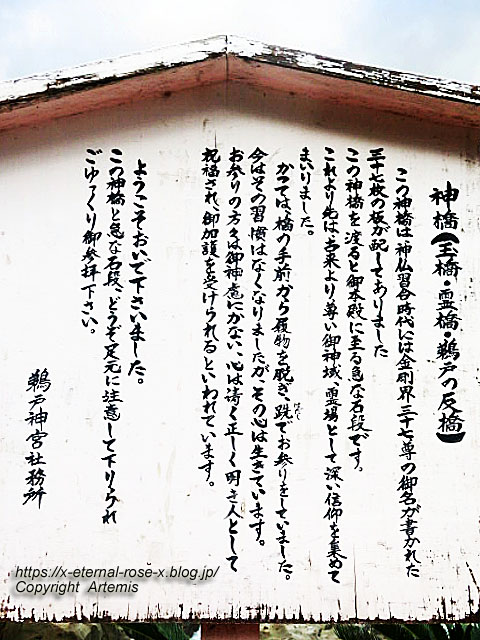 神橋【玉橋・霊橋・鵜戸の反橋】
この神橋は神仏習合時代には金剛界三十七尊の御名が書かれた
三十七枚の板が配してありました
この神橋を渡ると御本殿に至る急な石段です。
これより先は、古来より尊い御神域、霊場として深い信仰を集めて
まいりました。
かつては、橋の手前から履物を脱ぎ、跣でお参りをしていました。
はだし
今はその習慣はなくなりましたが、その心は生きています。
お参りの方々は御神意にかない、心は清く正しく明き人として
祝福され、御加護を受けられるといわれています。
ようこそおいで下さいました。
この神橋と急な石段、どうぞ足元に注意して下りられ
ごゆっくり御参拝下さい。
鵜戸神宮社務所
https://x-eternal-rose-x.blog.jp/
Copyright Artemis